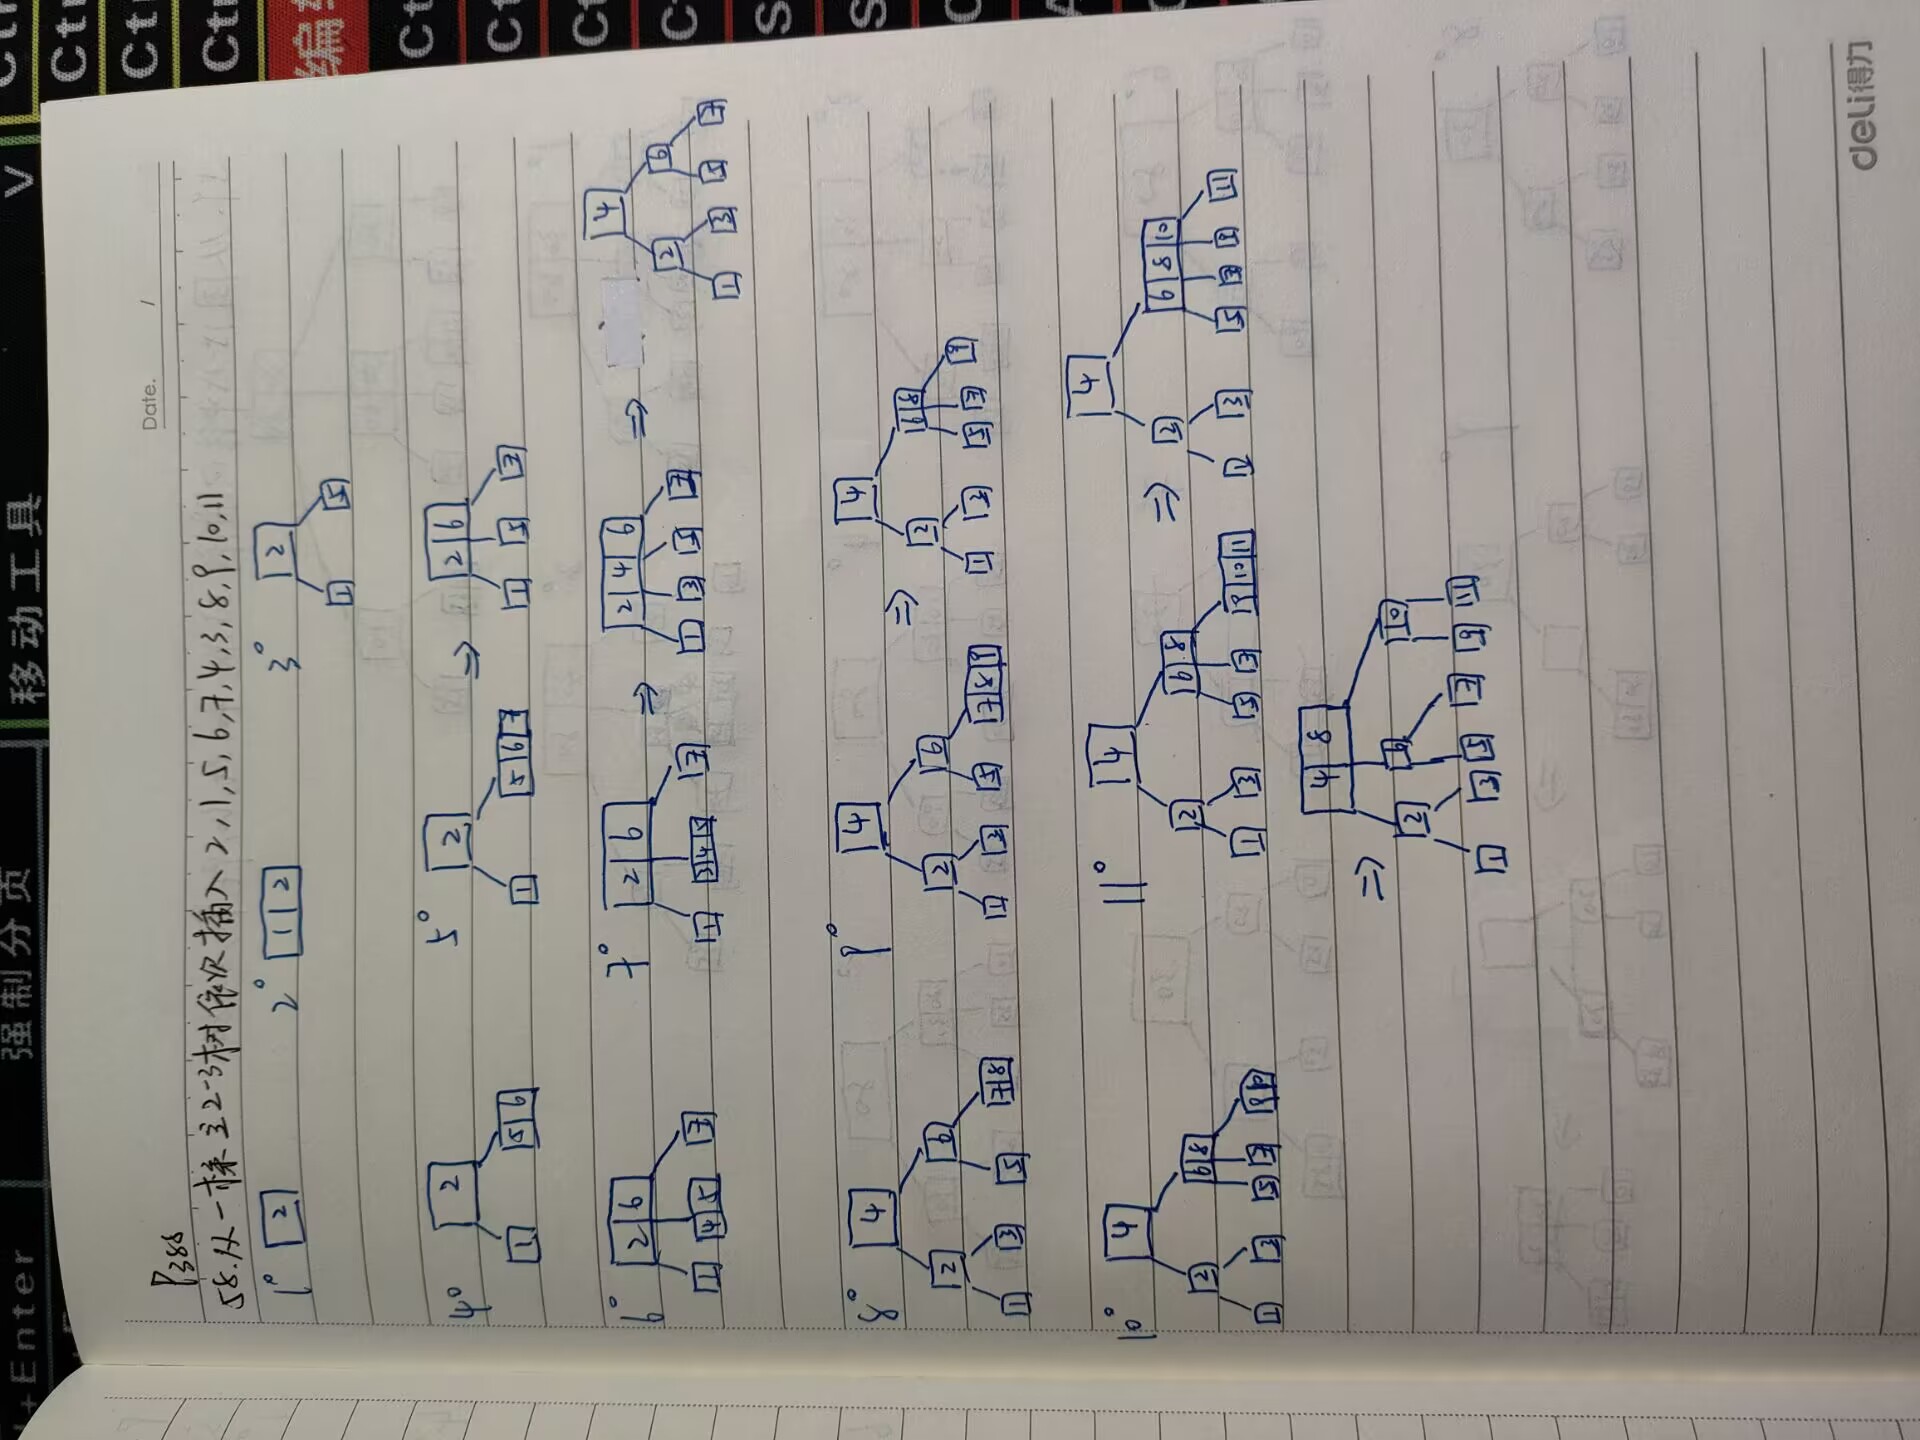 +Enter
强制分页
移动工具
V
Ctr
Ctr
Ctr
Date. /
P388
58.从一棵空2-3树依次插入 2,1,5,6,7,4,3,8,9,10,11
1° 2
2° 1 2
3° 2
1 5
4° 2
1 5 6
5° 2
1 5 6 7
⇒ 2 6
1 5 7
6° 2 6
1 4 5 7
7° 2 6
1 3 4 5 7
⇒ 2 4 6
1 3 5 7
⇒ 4
2 6
1 3 5 7
8° 4
2 6
1 3 5 7 8
9° 4
2 6
1 3 5 7 8 9
⇒ 4
2 6 8
1 3 5 7 9
10° 4
2 6 8
1 3 5 7 9 10
11° 4
2 6 8
1 3 5 7 9 10 11
⇒ 4
2 6 8 10
1 3 5 7 9 11
⇒ 4 8
2 6 10
1 3 5 7 9 11
deli得力